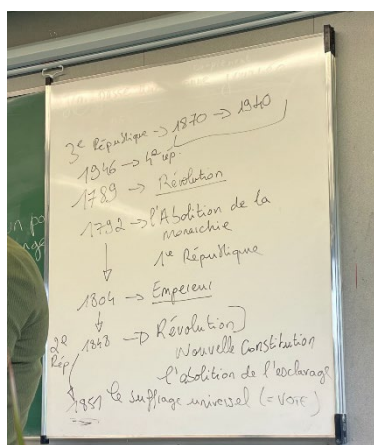 3e République → 1870 → 1940
1946 → 4e rép.
1789 → Révolution
1792 → l'Abolition de la
monarchie
1e République
1804 → Empereur
2e Rép
1848 → Révolution
Nouvelle Constitution
l'abolition de l'esclavage
1851 le suffrage universel (= VOTE)